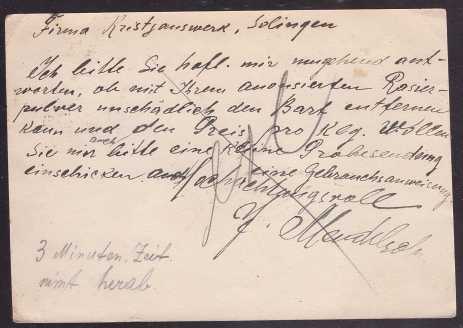 Firma Kristjanswerk, Solingen
Ich bitte Sie höfl. mir umgehend ant-
worten, ob mit Ihrem anonsierten Rasier-
pulver unschädlich den Bart entfernen
kann und den Preis pro Klg. Wollen
Sie mir auch bitte eine kleine Probesendung
einschicken und eine Gebrauchsanweisung.
Hochachtungsvoll
J. Mendelsoh
3 Minuten Zeit
nimt herab.